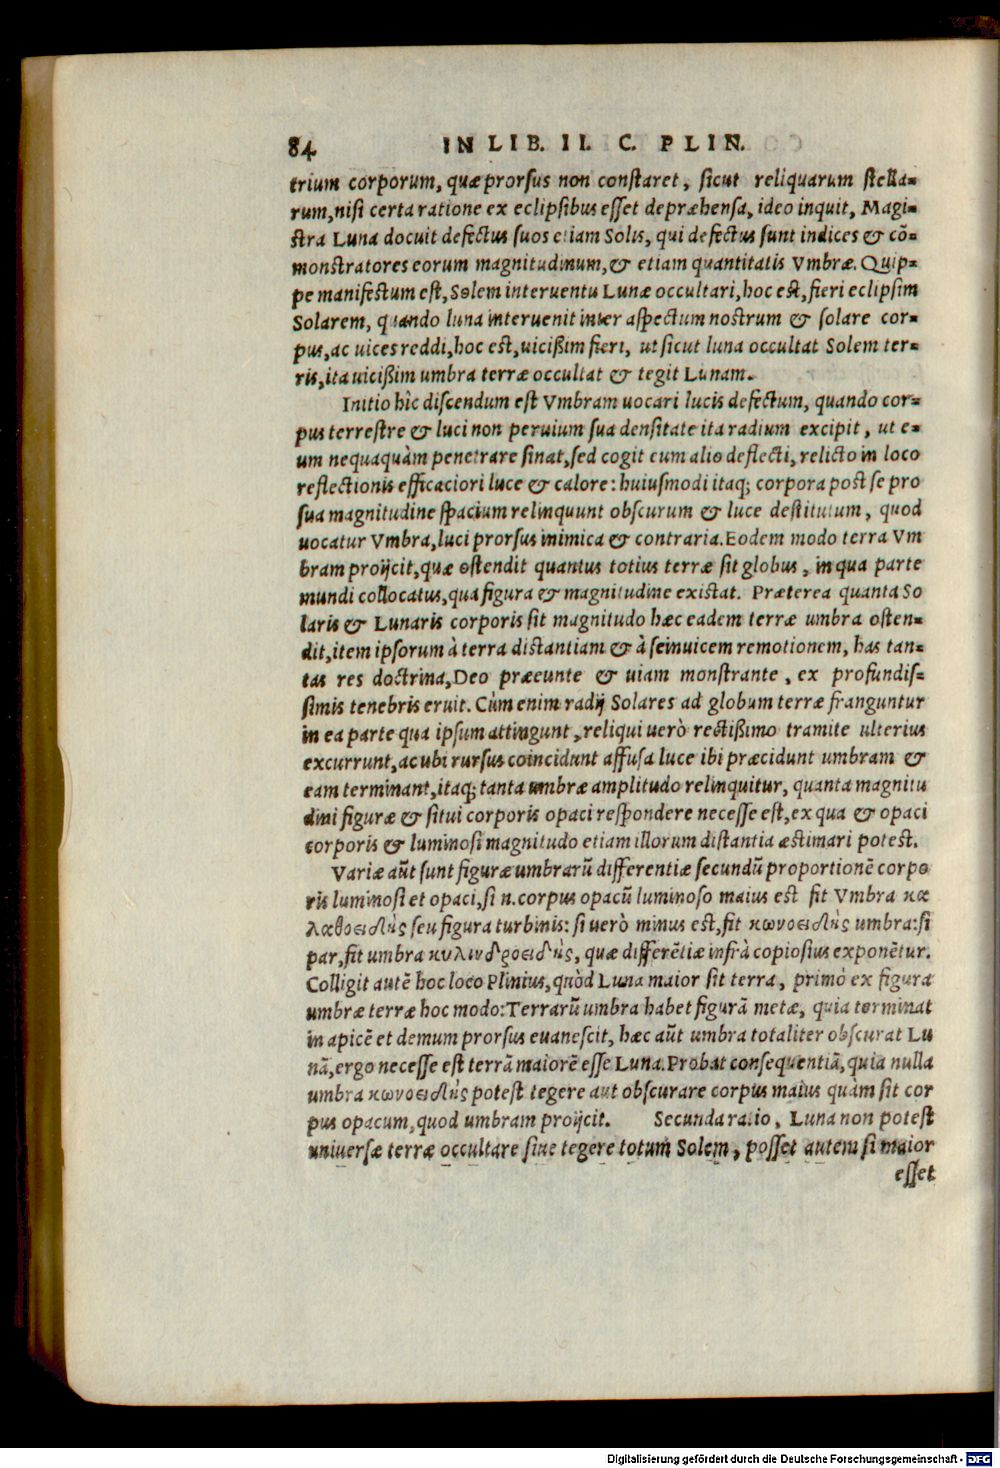 84 IN LIB. II. C. PLIN.
trium corporum, quæ prorsus non constaret, sicut reliquarum stella=
rum, nisi certa ratione ex eclipsibus esset depræhensa, ideo inquit, Magi=
stra Luna docuit defectus suos etiam Solis, qui defectus sunt indices & cō=
monstratores eorum magnitudinum, & etiam quantitatis Vmbræ. Quip=
pe manifestum est, Solem interuentu Lunæ occultari, hoc est, fieri eclipsim
Solarem, quando luna interuenit inter aspectum nostrum & solare cor=
pus, ac uices reddi, hoc est, uicißim fieri, ut sicut luna occultat Solem ter=
ris, ita uicißim umbra terræ occultat & tegit Lunam.
Initio hîc discendum est Vmbram uocari lucis defectum, quando cor=
pus terrestre & luci non peruium sua densitate ita radium excipit, ut e=
um nequaquàm penetrare sinat, sed cogit eum aliò deflecti, relicto in loco
reflectionis efficaciori luce & calore: huiusmodi itaq; corpora post se pro
sua magnitudine spacium relinquunt obscurum & luce destitutum, quod
uocatur Vmbra, luci prorsus inimica & contraria. Eodem modo terra Vm
bram proijcit, quæ ostendit quantus totius terræ sit globus, in qua parte
mundi collocatus, qua figura & magnitudine existat. Præterea quanta So
laris & Lunaris corporis sit magnitudo hæc eadem terræ umbra osten=
dit, item ipsorum à terra distantiam & à seinuicem remotionem, has tan=
tas res doctrina, Deo præeunte & uiam monstrante, ex profundis=
simis tenebris eruit. Cùm enim radij Solares ad globum terræ franguntur
in ea parte qua ipsum attingunt, reliqui uerò rectißimo tramite ulterius
excurrunt, ac ubi rursus coincidunt affusa luce ibi præcidunt umbram &
eam terminant, itaq; tanta umbræ amplitudo relinquitur, quanta magnitu
dini figuræ & situi corporis opaci respondere necesse est, ex qua & opaci
corporis & luminosi magnitudo etiam illorum distantia æstimari potest.
Variæ aūt sunt figuræ umbrarū differentiæ secundū proportionē corpo
ris luminosi et opaci, si n. corpus opacū luminoso maius est fit Vmbra κα
λαθοειδὴς seu figura turbinis: si uerò minus est, fit κωνοειδὴς umbra: si
par, fit umbra κυλινδροειδὴς, quæ differētiæ infrà copiosius exponētur.
Colligit autē hoc loco Plinius, quòd Luna maior sit terra, primò ex figura
umbræ terræ hoc modo: Terrarū umbra habet figurā metæ, quia terminat
in apicē et demum prorsus euanescit, hæc aūt umbra totaliter obscurat Lu
nā, ergo necesse est terrā maiorē esse Luna. Probat consequentiā, quia nulla
umbra κωνοειδὴς potest tegere aut obscurare corpus maius quàm sit cor
pus opacum, quod umbram proijcit. Secunda ratio, Luna non potest
uniuersæ terræ occultare siue tegere totum Solem, posset autem si maior
esset
Digitalisierung gefördert durch die Deutsche Forschungsgemeinschaft - DFG